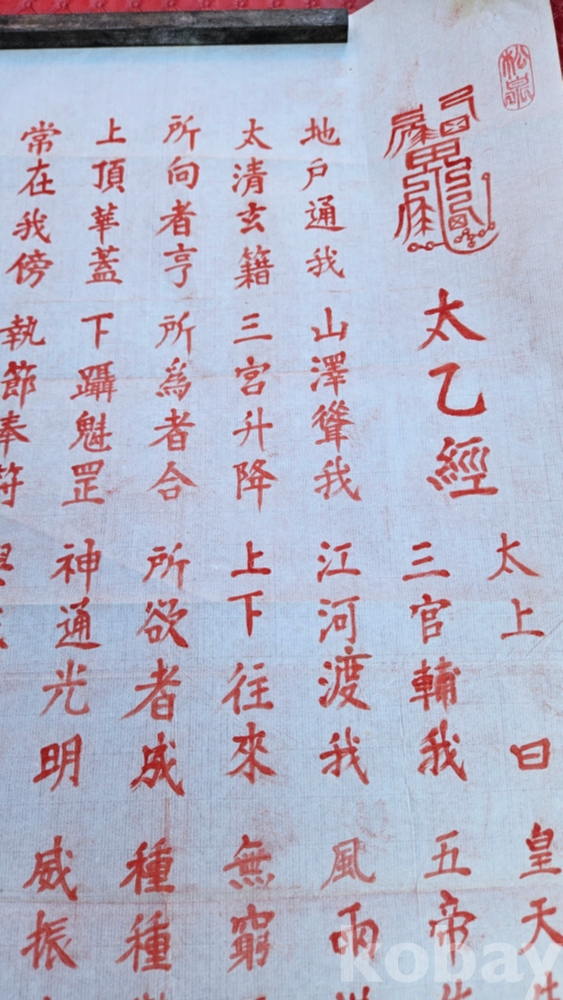 松泉
太乙經
太上曰皇天
三官輔我五帝
地户通我山澤聳我江河渡我風雨
太清玄籍三宮升降上下往來無窮
所向者亨所為者合所欲者成種種
上頂華蓋下躡魁罡神通光明威振
常在我傍執節奉符
kobay